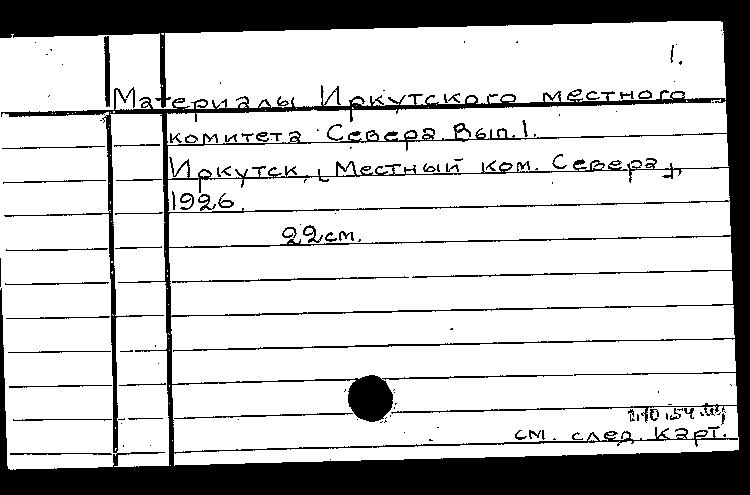 1.
Материалы Иркутского местного
комитета Севера. Вып. 1.
Иркутск, [Местный ком. Севера],
1926.
22 см.
1.10.54
см. след. карт.